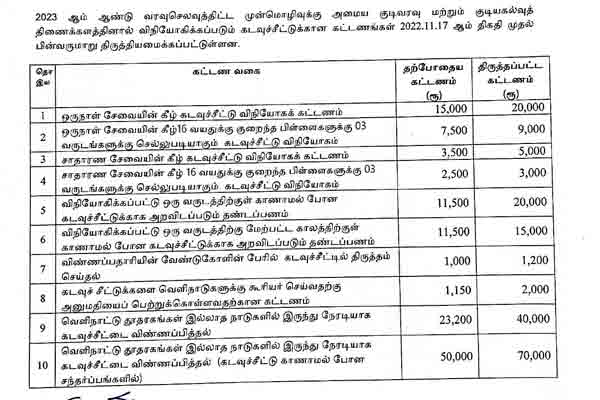 2023 ஆம் ஆண்டு வரவுசெலவுத்திட்ட முன்மொழிவுக்கு அமைய குடிவரவு மற்றும் குடியகல்வுத்
திணைக்களத்தினால் விநியோகிக்கப்படும் கடவுச்சீட்டுக்கான கட்டணங்கள் 2022.11.17 ஆம் திகதி முதல்
பின்வருமாறு திருத்தியமைக்கப்பட்டுள்ளன.
தொ இல கட்டண வகை தற்போதைய கட்டணம் (ரூ) திருத்தப்பட்ட கட்டணம் (ரூ)
1 ஒருநாள் சேவையின் கீழ் கடவுச்சீட்டு விநியோகக் கட்டணம் 15,000 20,000
2 ஒருநாள் சேவையின் கீழ்16 வயதுக்கு குறைந்த பிள்ளைகளுக்கு 03
வருடங்களுக்கு செல்லுபடியாகும் கடவுச்சீட்டு விநியோகம் 7,500 9,000
3 சாதாரண சேவையின் கீழ் கடவுச்சீட்டு விநியோகக் கட்டணம் 3,500 5,000
4 சாதாரண சேவையின் கீழ் 16 வயதுக்கு குறைந்த பிள்ளைகளுக்கு 03
வருடங்களுக்கு செல்லுபடியாகும் கடவுச்சீட்டு விநியோகம் 2,500 3,000
5 விநியோகிக்கப்பட்டு ஒரு வருடத்திற்குள் காணாமல் போன
கடவுச்சீட்டுக்காக அறவிடப்படும் தண்டப்பணம் 11,500 20,000
6 விநியோகிக்கப்பட்டு ஒரு வருடத்திற்கு மேற்பட்ட காலத்திற்குள்
காணாமல் போன கடவுச்சீட்டுக்காக அறவிடப்படும் தண்டப்பணம் 11,500 15,000
7 விண்ணப்பதாரியின் வேண்டுகோளின் பேரில் கடவுச்சீட்டில் திருத்தம்
செய்தல் 1,000 1,200
8 கடவுச் சீட்டுக்களை வெளிநாடுகளுக்கு கூரியர் செய்வதற்கு
அனுமதியைப் பெற்றுக்கொள்வதற்கான கட்டணம் 1,150 2,000
9 வெளிநாட்டு தூதரகங்கள் இல்லாத நாடுகளில் இருந்து நேரடியாக
கடவுச்சீட்டை விண்ணப்பித்தல் 23,200 40,000
10 வெளிநாட்டு தூதரகங்கள் இல்லாத நாடுகளில் இருந்து நேரடியாக
கடவுச்சீட்டை விண்ணப்பித்தல் (கடவுச்சீட்டு காணாமல் போன
சந்தர்ப்பங்களில்) 50,000 70,000